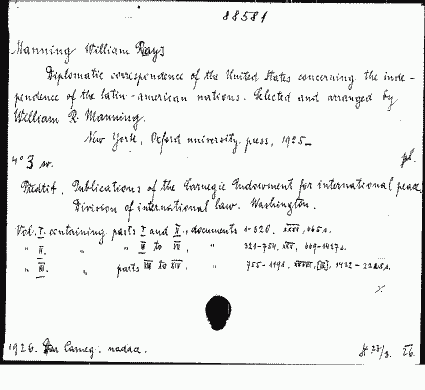 88581
Manning William Rays
Diplomatic correspondence of the United States concerning the inde-
pendence of the latin-american nations. Selected and arranged by
William R. Manning.
New York, Oxford university press, 1925-
4° 3 vv. pl.
Publications of the Carnegie Endowment for international peace,
Division of international law. Washington.
Vol. I. containing parts I and II, documents 1-320. XXXI, 665 s.
" II. " " III to VII, " 321-754. XXV, 669-1437 s.
" III. " parts VIII to XIV. " 755-1194.
1926. Dar Carneg. nadac. 26.